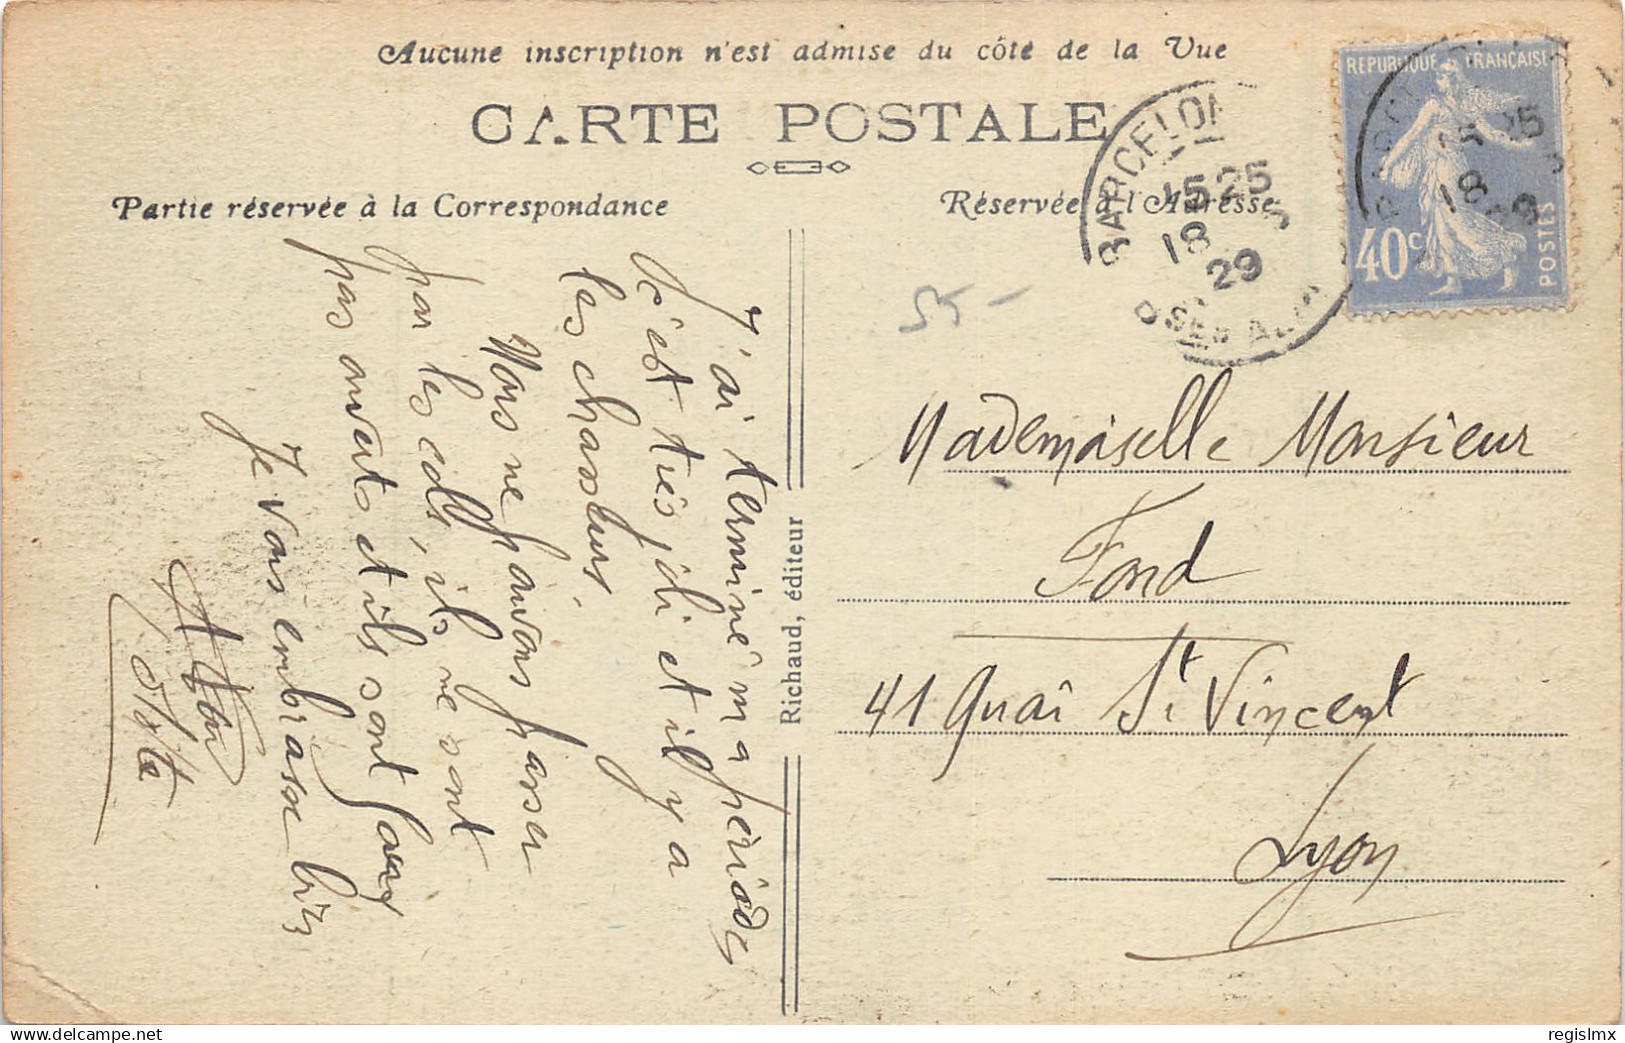 Aucune inscription n'est admise du côté de la Vue
CARTE POSTALE
Partie réservée à la Correspondance
Réservée à l'Adresse
BARCELON
1525
18 5
29
BSES ALP
REPUBLIQUE FRANÇAISE
40c
POSTES
55 -
J'ai terminé ma périodes
C'est très joli et il y a
les chasseurs.
Nous ne pouvons passer
par les cols, ils ne sont
pas ouverts et ils sont
Je vous embrasse bien
Richaud, éditeur
Mademoiselle Monsieur
Fond
41 Quai St Vincent
Lyon
delcampe.net
regislmx